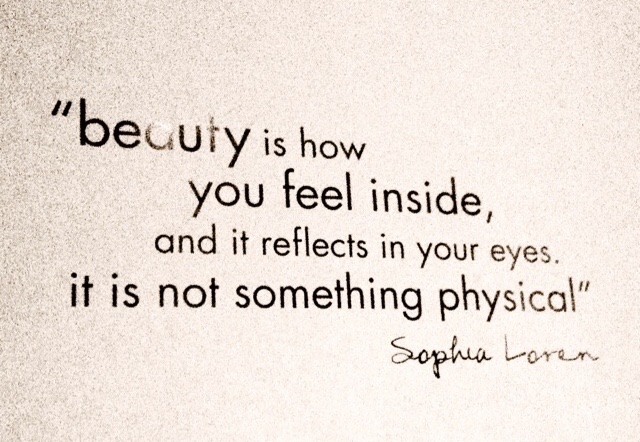 "beauty is how
you feel inside,
and it reflects in your eyes.
it is not something physical"
Sophia Loren